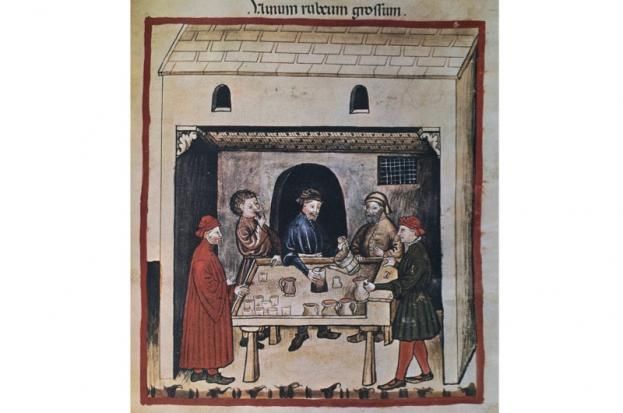 Vinum rubeum grossum.